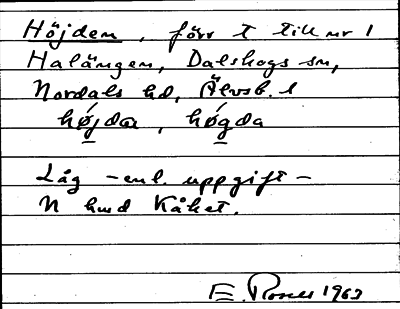 Höjden, förr t till nr 1
Halängen, Dalskogs sn,
Nordals hd, Älvsb. l
högda, högda
Låg - enl. uppgift -
N hmd Kåhet.
E. Rosell 1963